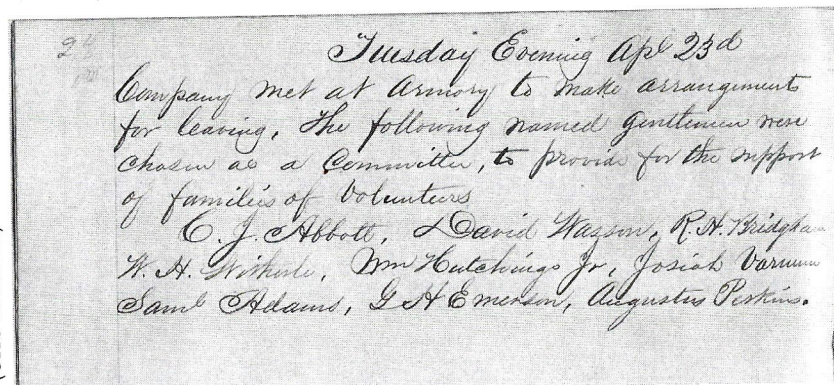 Tuesday Evening Apl 23d
Company met at Armory to make arrangements
for leaving, The following named gentlemen were
chosen as a Committee, to provide for the support
of families of Volunteers
C. J. Abbott, David Wasson, R. H. Bridgham
W. H. Witherle, Wm Hutchings Jr, Josiah Varnum
Saml Adams, G H Emerson, Augustus Perkins.